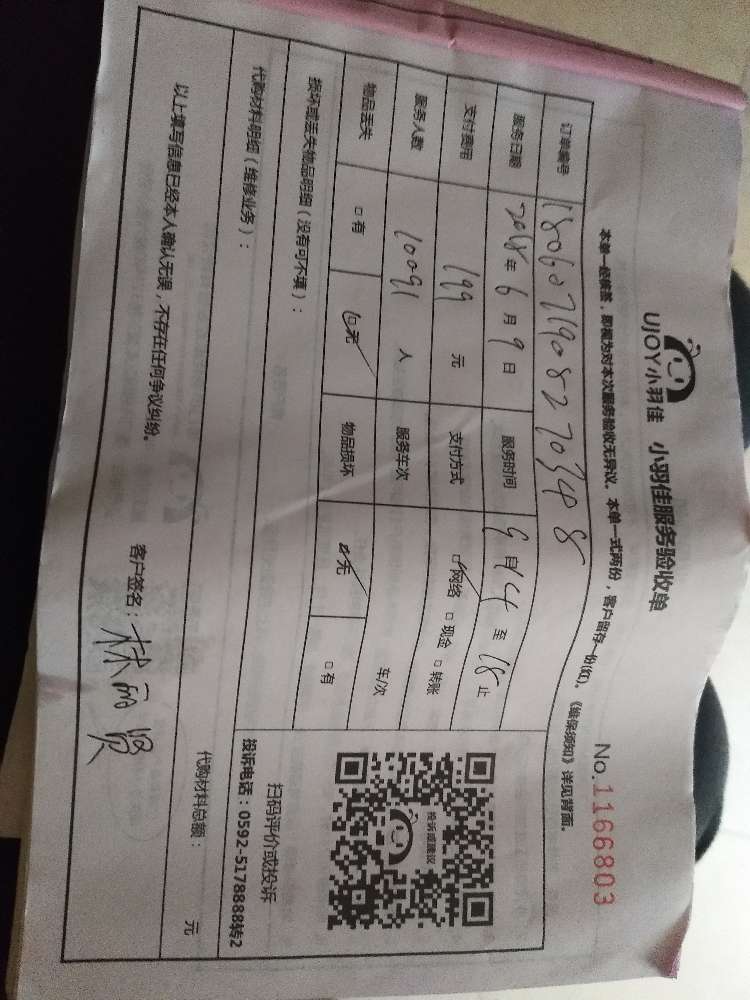 UJOY小羽佳 小羽佳服务验收单
No.1166803
本单一经核签，即视为对本次服务验收无异议。本单一式两份，客户留存一份(红)。《维保须知》详见背面。
订单编号 180607190827034 8
服务日期 2018年 6 月 9 日 服务时间 14 至 18 止
支付费用 199 元 支付方式 ☑网络 □现金 □转账
服务人数 10091 人 服务车次 车/次
物品丢失 □有 ☑无 物品损坏 ☑无 □有
损坏或丢失物品明细（没有可不填）：
代购材料明细（维修业务）：
代购材料总额： 元
投诉或建议
扫码评价或投诉
投诉电话：0592-5178888转2
以上填写信息已经本人确认无误，不存在任何争议纠纷。
客户签名：林丽贤